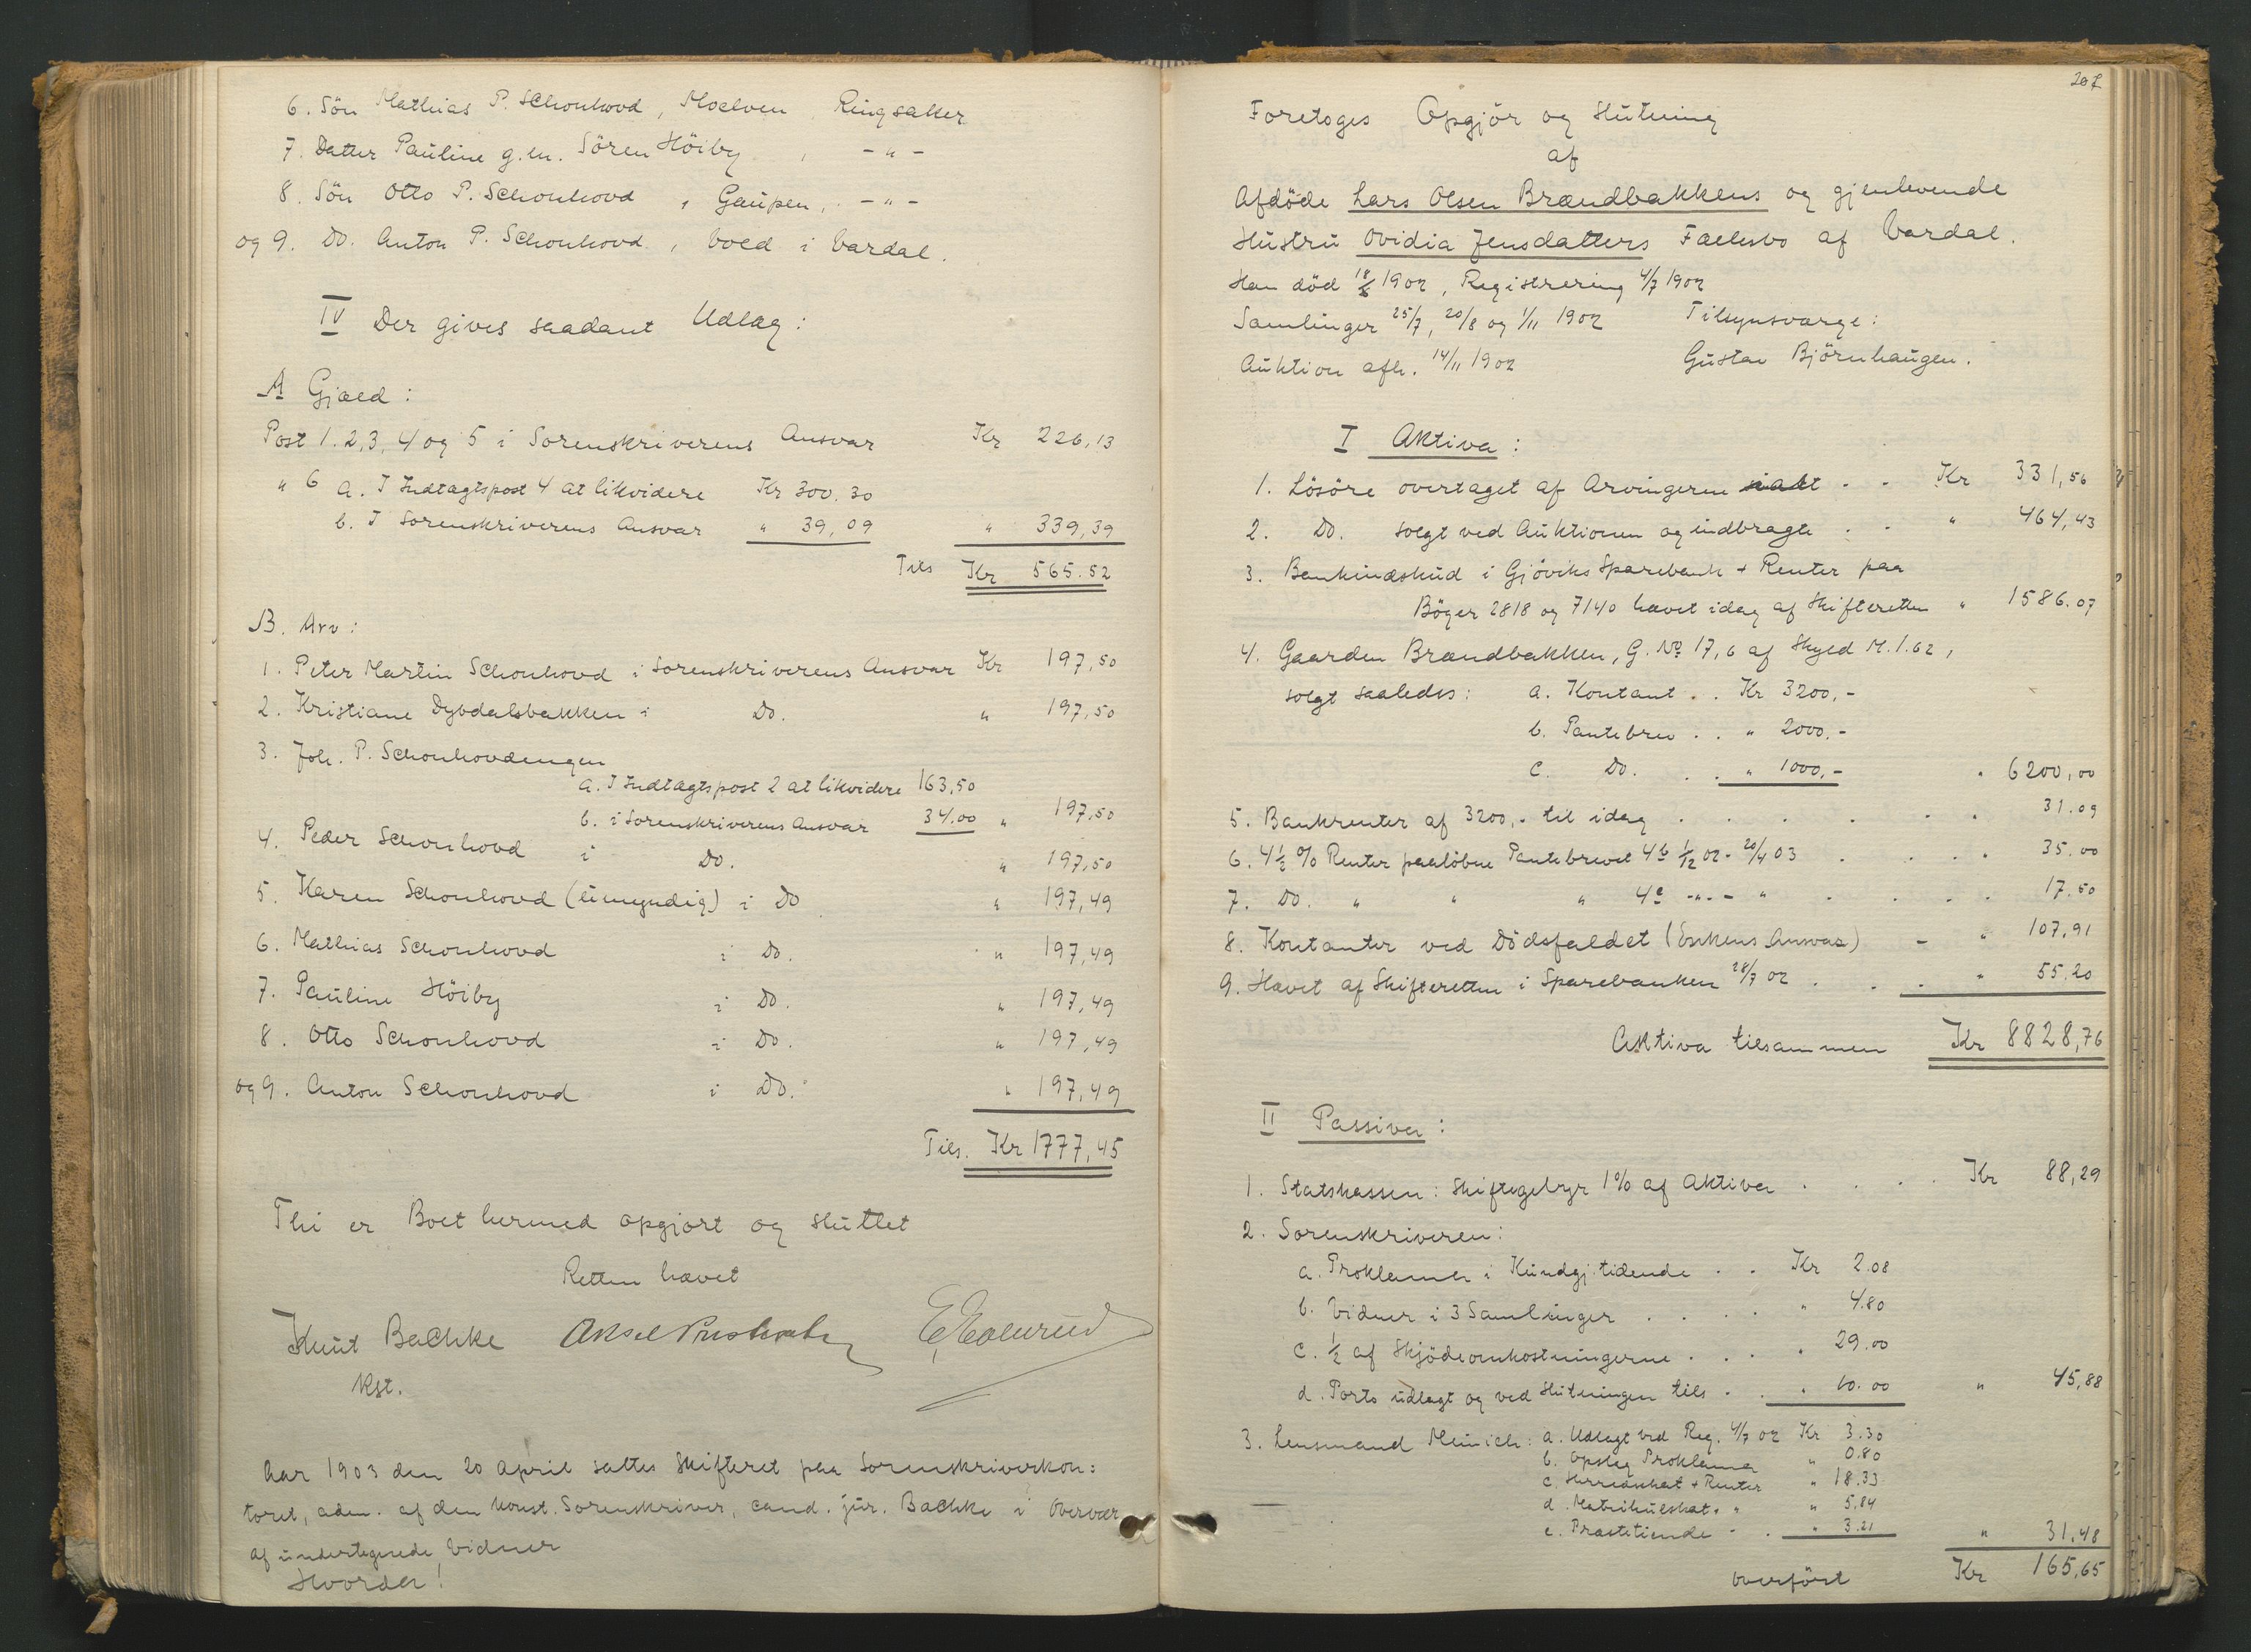 6. Sön Mathias P. Schonhovd, Moelven, Ringsaker
7. Datter Pauline g.m. Sören Höiby, -"-
8. Sön Otto P. Schonhovd, Gaupen, -"-
og 9. Do. Anton P. Schonhovd, bold i Vardal.
IV Der gives saadant Udlæg:
A Gjæld:
Post 1.2,3,4 og 5 i Sorenskriverens Ansvar Kr 226,13
" 6 a. I Indtægtspost 4 at likvidere Kr 300.30
b. I Sorenskriverens Ansvar " 39,09 " 339,39
Tils Kr 565.52
B. Arv:
1. Peter Martin Schonhovd i Sorenskriverens Ansvar Kr 197,50
2. Kristiane Dybdalsbakken i Do. " 197,50
3. Joh. P. Schonhovdengen
a. I Indtægtspost 2 at likvidere 163,50
b. i Sorenskriverens Ansvar 34.00 " 197,50
4. Peder Schonhovd i Do. " 197,50
5. Karen Schonhovd (umyndig) i Do " 197,49
6. Mathias Schonhovd i Do. " 197,49
7. Pauline Höiby i Do. " 197,49
8. Otto Schonhovd i Do. " 197,49
og 9. Anton Schonhovd i Do. " 197,49
Tils. Kr 1777,45
Thi er Boet hermed opgjort og sluttet
Retten hævet
Knut Bachke
Kst.
Aar 1903 den 20 April sattes Skifteret paa Sorenskriverkon:
toret, adm. af den konst. Sorenskriver, cand. jur. Bachke i Overvær
af undertegnede Vidner
Hvorda!
207
Foretoges Opgjör og Slutning
af
Afdöde Lars Olsen Brændbakkens og gjenlevende
Hustru Ovidia Jensdatters Fællesbo af Vardal.
Han död 18/6 1902, Registrering 4/7 1902
Samlinger 25/7, 20/8 og 1/11 1902 Tilsynsværge:
Auktion afh. 14/11 1902 Gustav Björnhaugen.
I Aktiva:
1. Lösöre overtaget af Arvingerne ialt . . Kr 331,56
2. Do. solgt ved Auktionen og indbragte . . " 464,43
3. Bankindskud i Gjöviks Sparebank + Renter paa
Böger 2818 og 7140 hævet idag af Skifteretten " 1586.07
4. Gaarden Brændbakken, G. No 17,6 af Skyld M. 1.62,
solgt saaledes: a. Kontant . . Kr 3200,-
b. Pantebrev . . " 2000.-
c. Do. . . " 1000,- " 6200,00
5. Bankrenter af 3200,- til idag . . . . . . 31.09
6. 4½ % Renter paalöbne Pantebrevet 4b 1/12 02 - 20/4 03 . . . . 35.00
7. Do. " " " 4c -"- - " . . . . 17.50
8. Kontanter ved Dödsfaldet (Enkens Ansvar) - " 107,91
9. Hævet af Skifteretten i Sparebanken 28/7 02 . . . " 55.20
Aktiva tilsammen Kr 8828,76
II Passiva:
1. Statskassen: Skiftegebyr 1% af Aktiva . . . . Kr 88,29
2. Sorenskriveren:
a. Proklama i Kundgj.tidende . . Kr 2.08
b. Vidner i 3 Samlinger . . . . " 4.80
c. ½ af Skjödeomkostningerne . . . " 29.00
d. Porto udlagt og ved Slutningen tils . . " 10.00 " 45,88
3. Lensmand Meinich: a. Udlagt ved Reg. 4/7 02 Kr 3.30
b. Opslag Proklama " 0.80
c. Herredskat + Renter " 18.33
d. Matrikulskat + " " 5.84
e. Præstetiende - . " 3.21 " 31.48
overfört Kr 165,65